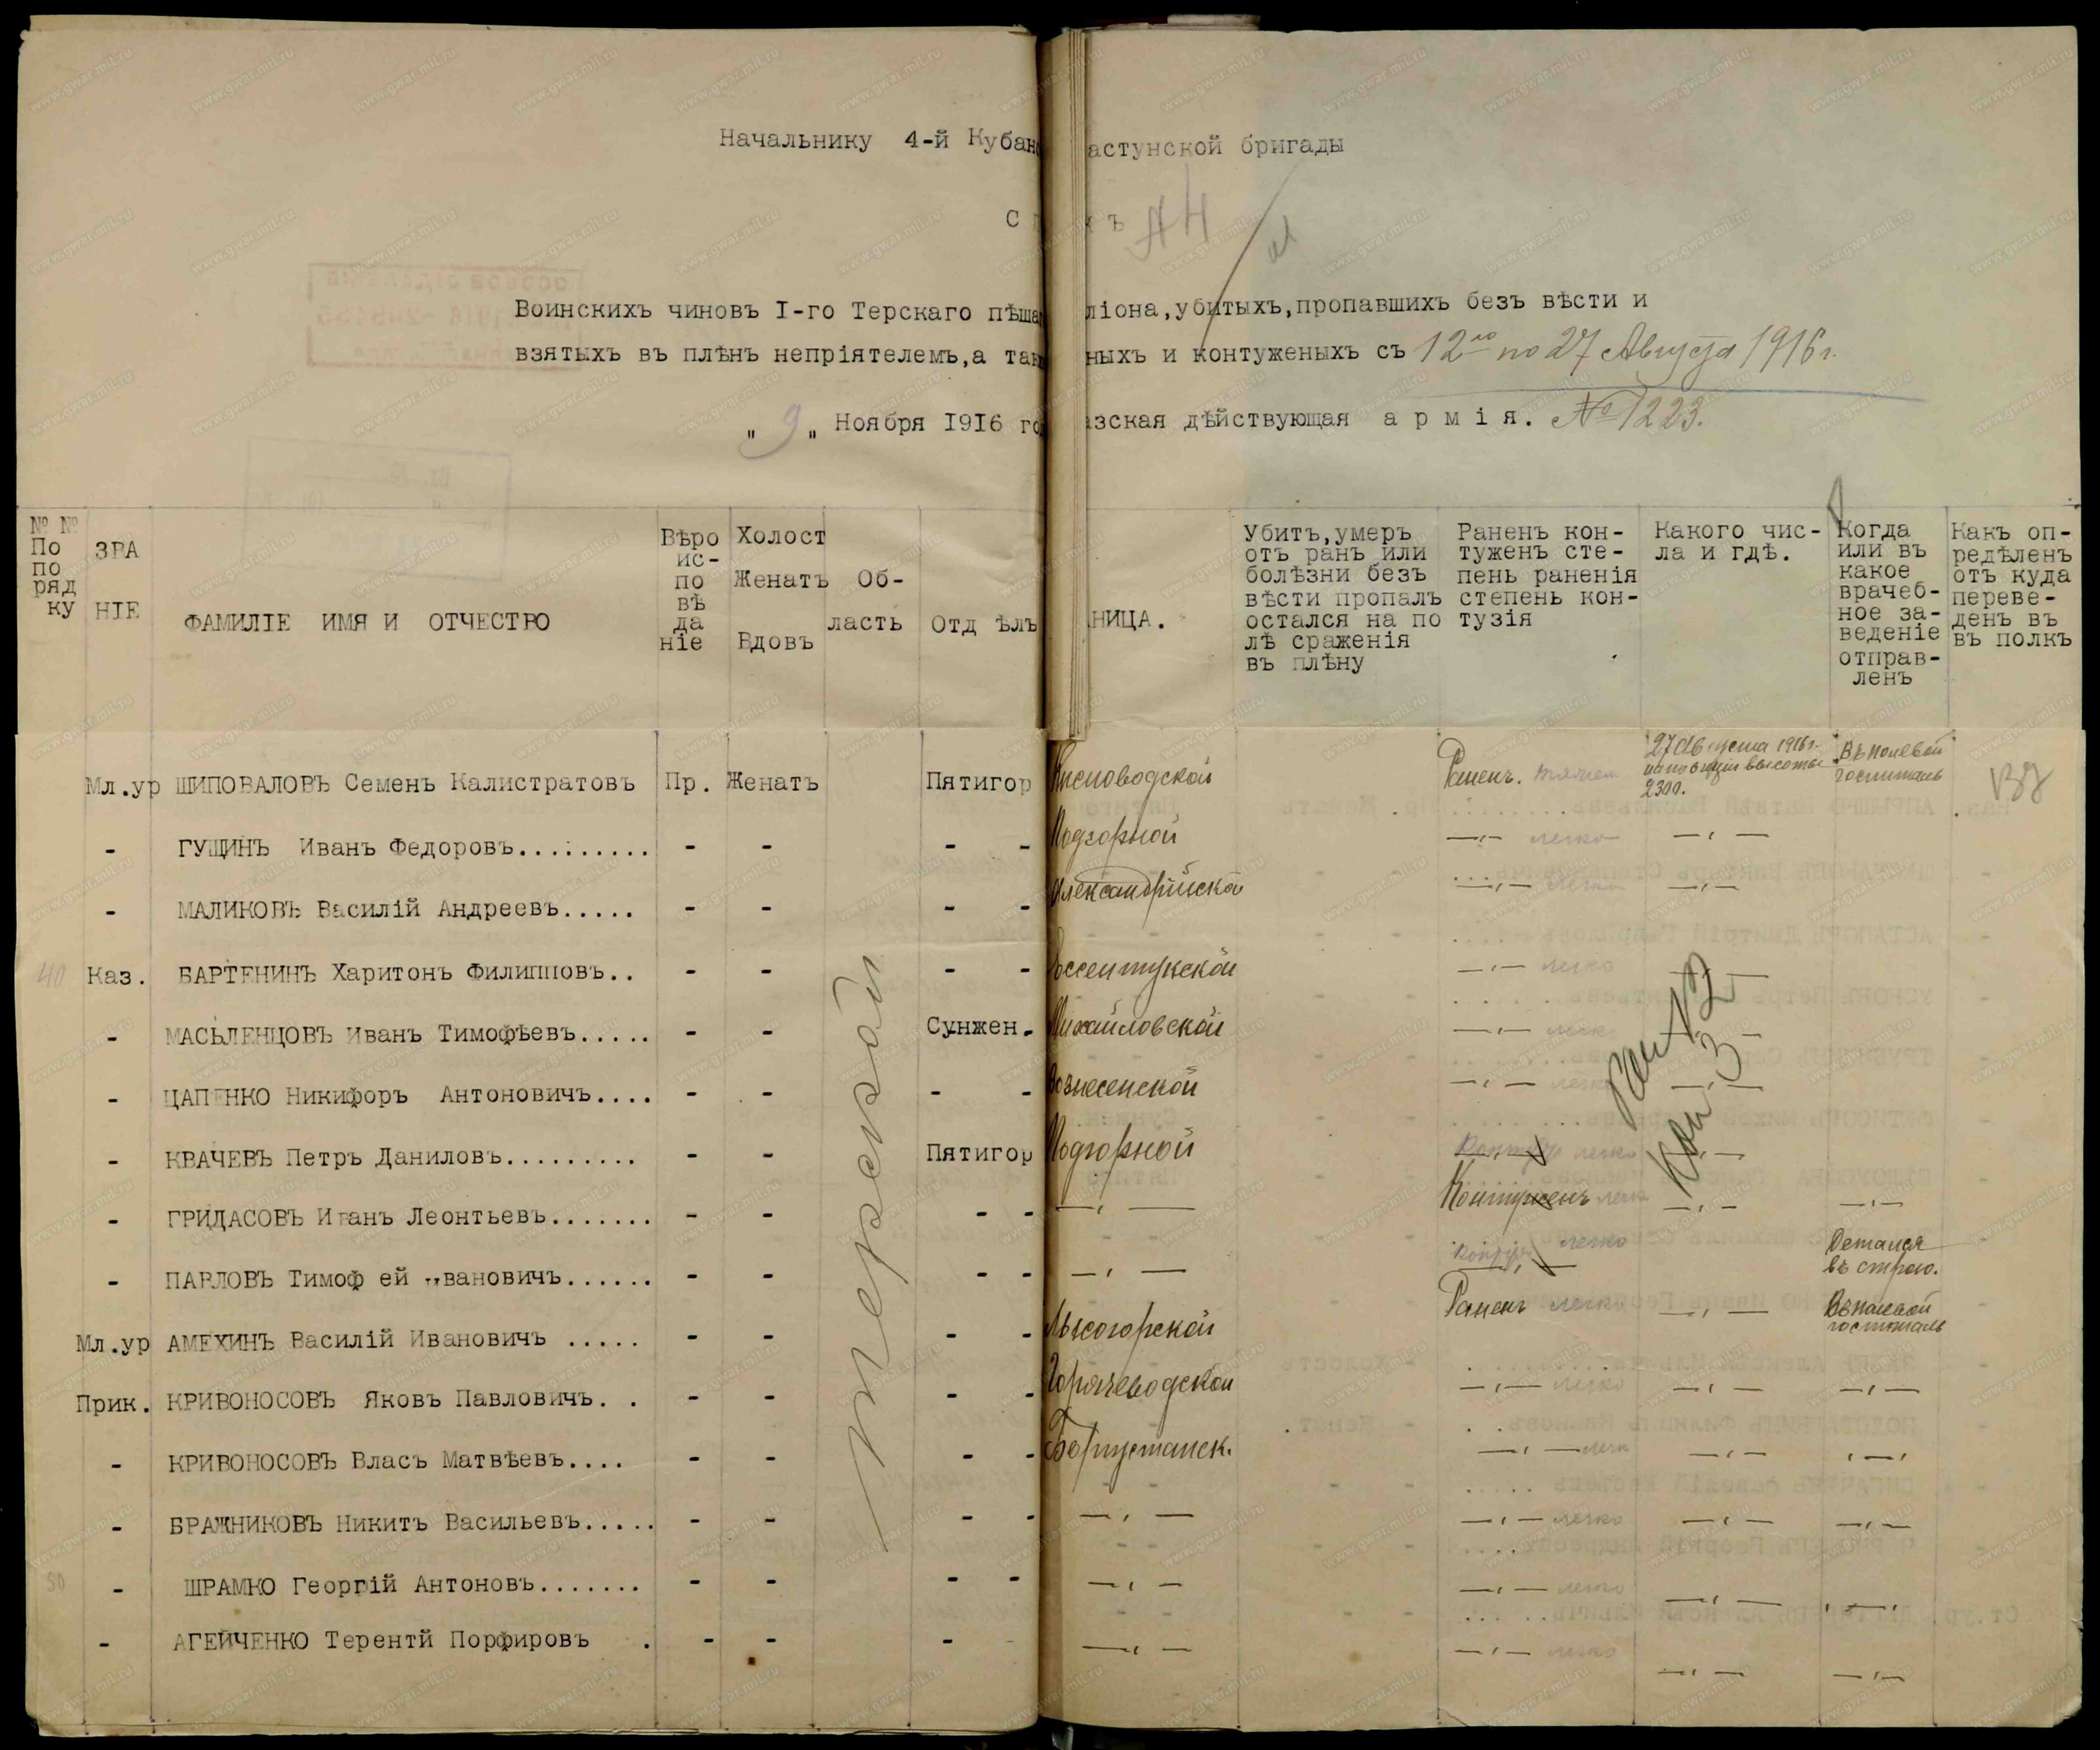 Начальнику 4-й Кубан астунской бригады
С ъ
АН
Воинскихъ чиновъ I-го Терскаго пѣша ліона,убитыхъ,пропавшихъ безъ вѣсти и
взятыхъ въ плѣнъ непріятелемъ,а так ныхъ и контуженыхъ съ 12го по 27 Августа 1916 г.
" 9 " Ноября 1916 го зская дѣйствующая армія. № 1223.
№ № По по ряд ку
ЗВА НІЕ
ФАМИЛІЕ ИМЯ И ОТЧЕСТВО
Вѣро ис- по вѣ да ніе
Холост Женатъ Вдовъ
Об- ласть
Отд ѣлъ
НИЦА.
Убитъ,умеръ отъ ранъ или болѣзни безъ вѣсти пропалъ остался на по лѣ сраженія въ плѣну
Раненъ кон- туженъ сте- пень раненія степень кон- тузія
Какого чис- ла и гдѣ.
Когда или въ какое врачеб- ное за- веденіе отправ- ленъ
Какъ оп- редѣленъ отъ куда переве- денъ въ въ полкъ
Терской
Мл.ур ШИПОВАЛОВЪ Семенъ Калистратовъ Пр. Женатъ Пятигор Кисловодской Раненъ. тяжел 27 Августа 1916 г. высоты 2300. Въ полевой госпиталь
- ГУЩИНЪ Иванъ Федоровъ......... - - - - Подгорной —„— легко —„—
- МАЛИКОВЪ Василій Андреевъ..... - - - - Александрійской —„— легко —„—
40 Каз. БАРТЕНИНЪ Харитонъ Филипповъ.. - - - - Ессентукской —„— легко
- МАСЬЛЕНЦОВЪ Иванъ Тимофѣевъ..... - - Сунжен. Михайловской —„— легко
- ЦАПЕНКО Никифоръ Антоновичъ.... - - - - Вознесенской —„— легко —„—
- КВАЧЕВЪ Петръ Даниловъ......... - - Пятигор Подгорной Контуж легко —„—
- ГРИДАСОВЪ Иванъ Леонтьевъ....... - - - - —„— Контуженъ легк —„— —„—
- ПАВЛОВЪ Тимоф ей ивановичъ...... - - - - —„— Контуж легко Остался въ строю.
Мл.ур АМЕХИНЪ Василій Ивановичъ ..... - - - - Лысогорской Раненъ легко —„— Въ полевой госпиталь
Прик. КРИВОНОСОВЪ Яковъ Павловичъ. . - - - - Горячеводской —„— легко —„— —„—
- КРИВОНОСОВЪ Власъ Матвѣевъ.... - - - - Боргустанск. —„— легк —„— —„—
- БРАЖНИКОВЪ Никитъ Васильевъ..... - - - - —„— —„— легко —„— —„—
50 - ШРАМКО Георгій Антоновъ....... - - - - —„— —„— легко —„— —„—
- АГЕЙЧЕНКО Терентй Порфировъ . - - - - —„— —„— легко —„— —„—
Ран 12
Кон 3
www.gwar.mil.ru